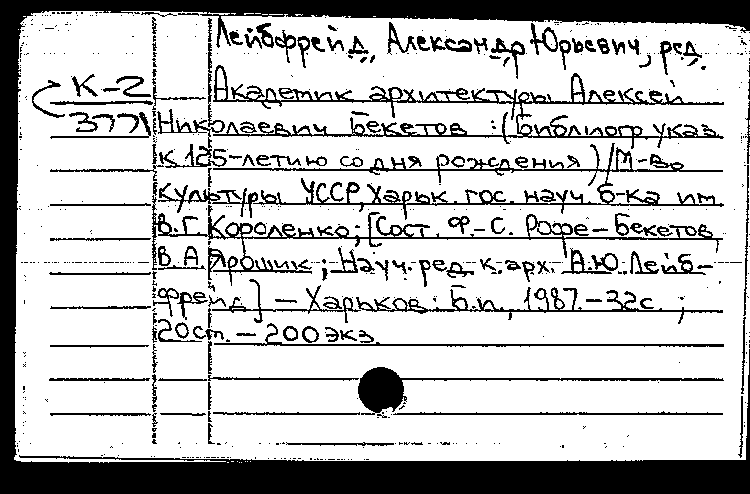 Лейбфрейд, Александр Юрьевич, ред.
К-2 Академик архитектуры Алексей
3771 Николаевич Бекетов : (Библиогр. указ.
к 125-летию со дня рождения) / М-во
культуры УССР, Харьк. гос. науч. б-ка им.
В. Г. Короленко; [Сост. Ф.-С. Рофе-Бекетов,
В. А. Ярошик ; Науч. ред. к. арх. А.Ю. Лейб-
фрейд] - Харьков : Б.и., 1987. - 32с. ;
20см. - 200 экз.